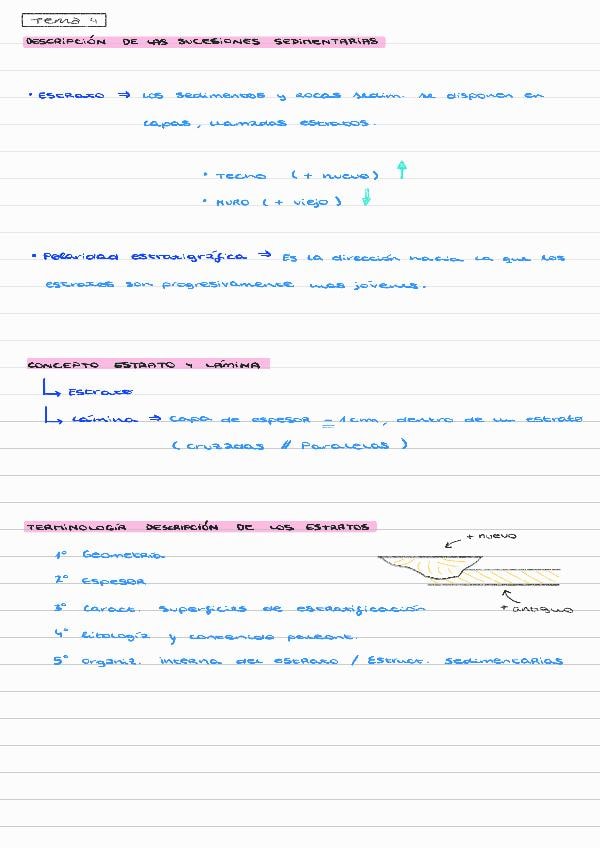 Tema 4
DESCRIPCIÓN DE LAS SUCESIONES SEDIMENTARIAS
• Estrato ⇒ Los sedimentos y rocas sedim. se disponen en
capas, llamadas estratos.
• Techo (+ nuevo) ↑
• Muro (+ viejo) ↓
• Polaridad estratigráfica ⇒ Es la dirección hacia la que los
estratos son progresivamente mas jóvenes.
CONCEPTO ESTRATO Y LÁMINA
↳ Estrato
↳ Lámina ⇒ capa de espesor = 1cm, dentro de un estrato
(cruzadas // Paralelas)
TERMINOLOGÍA DESCRIPCIÓN DE LOS ESTRATOS
+ nuevo
1° Geometría
2° Espesor
3° Caract. superficies de estratificación
+ antiguo
4° Litología y contenido paleont.
5° Organiz. interna del estrato / Estruct. sedimentarias